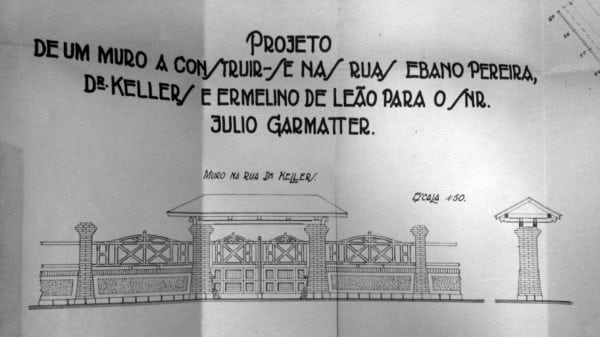 PROJETO
DE UM MURO A CONSTRUIR-SE NAS RUAS EBANO PEREIRA,
DR. KELLERS E ERMELINO DE LEÃO PARA O SNR.
JULIO GARMATTER.
MURO NA RUA DR KELLERS.
ESCALA 1:50.